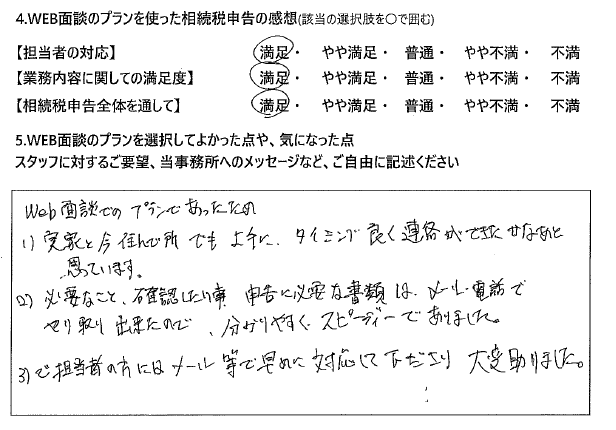 4.WEB面談のプランを使った相続税申告の感想(該当の選択肢を〇で囲む)
【担当者の対応】 満足・ やや満足・ 普通・ やや不満・ 不満
【業務内容に関しての満足度】 満足・ やや満足・ 普通・ やや不満・ 不満
【相続税申告全体を通して】 満足・ やや満足・ 普通・ やや不満・ 不満
5.WEB面談のプランを選択してよかった点や、気になった点
スタッフに対するご要望、当事務所へのメッセージなど、ご自由に記述ください
Web面談でのプランであったため
1) 実家と今住んで所でも 、タイミング良く連絡ができたかなあと
思っています。
2) 必要なこと、確認したい事 申告に必要な書類は、メール・電話で
やり取り出来たので、分かりやすく、スピーディーでありました。
3) ご担当者の方にはメール等で早めに対応して下ださり 大変助りました。